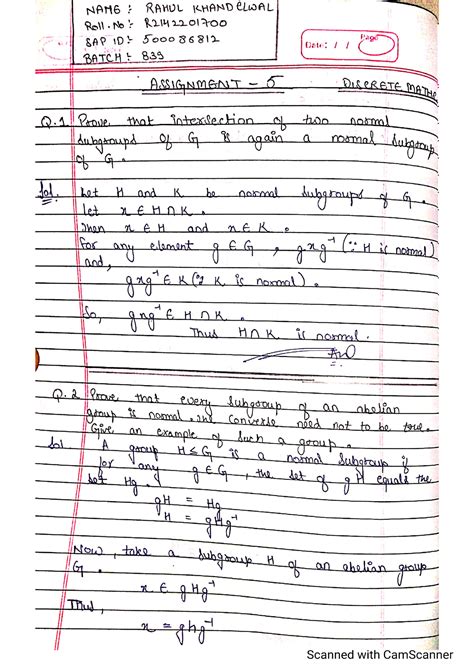 NAME : RAHUL KHANDELWAL
Roll.No :- R2142201700
SAP ID :- 500086812
BATCH :- B39
Date: / /
Page
ASSIGNMENT - 5 DISCRETE MATHS
Q.1 Prove that intersection of two normal
subgroups of G is again a normal subgroup
of G.
Sol. Let H and K be normal subgroups of G.
let x ∈ H∩K.
Then x ∈ H and x ∈ K.
For any element g ∈ G, gxg⁻¹ (∵ H is normal)
and,
gxg⁻¹ ∈ K (∵ K is normal).
So, gxg⁻¹ ∈ H∩K.
Thus H∩K is normal.
Q.2 Prove that every subgroup of an abelian
group is normal. The converse need not to be true.
Give an example of such a group.
Sol A group H ≤ G is a normal subgroup if
for any g ∈ G, the set of gH equals the
set Hg.
gH = Hg
H = gHg⁻¹
Now, take a subgroup H of an abelian group
G.
x ∈ gHg⁻¹
Thus,
x = ghg⁻¹
Scanned with CamScanner